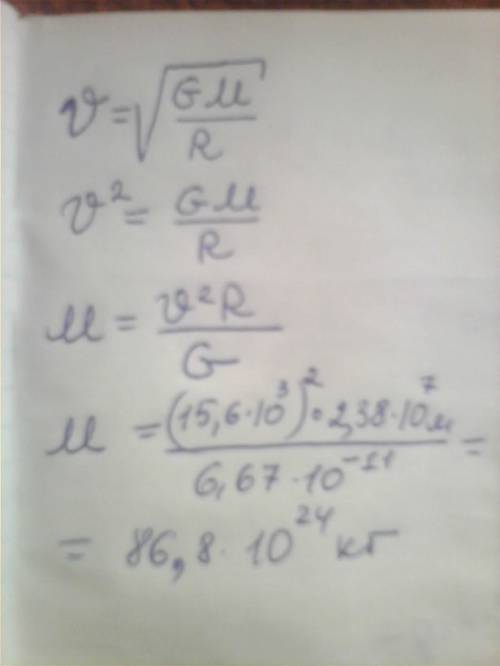 υ = √(GM/R)
υ² = GM/R
M = υ²R/G
M = (15,6·10³)²·2,38·10⁷м/6,67·10⁻¹¹ =
= 86,8·10²⁴ кг